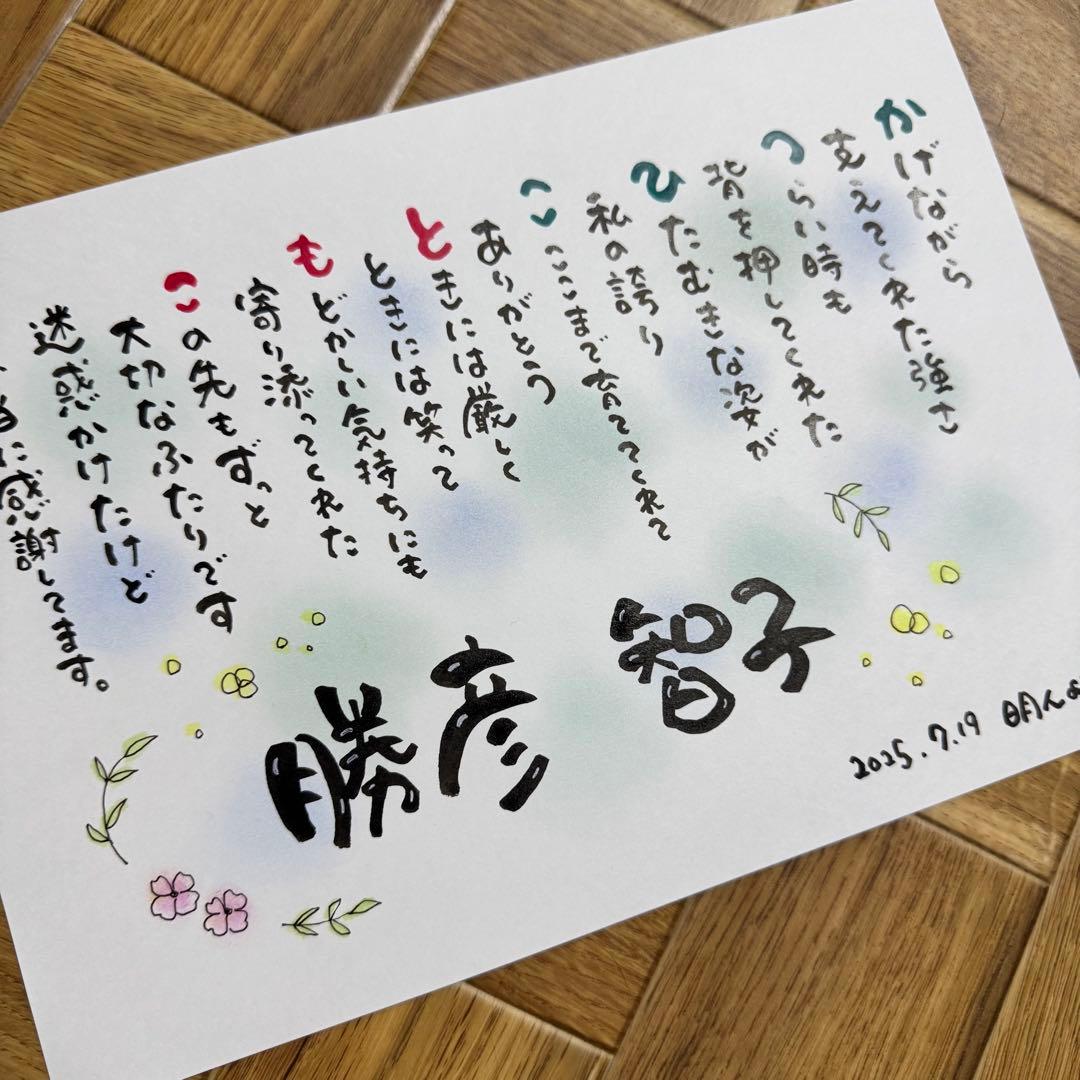 かげながら
支えてくれた強さ
つらい時も
背を押してくれた
ひたむきな姿が
私の誇り
ここまで育ててくれて
ありがとう
ときには厳しく
ときには笑って
もどかしい気持ちにも
寄り添ってくれた
この先もずっと
大切なふたりです
迷惑かけたけど
に感謝してます。
智子
勝彦
2025.7.19